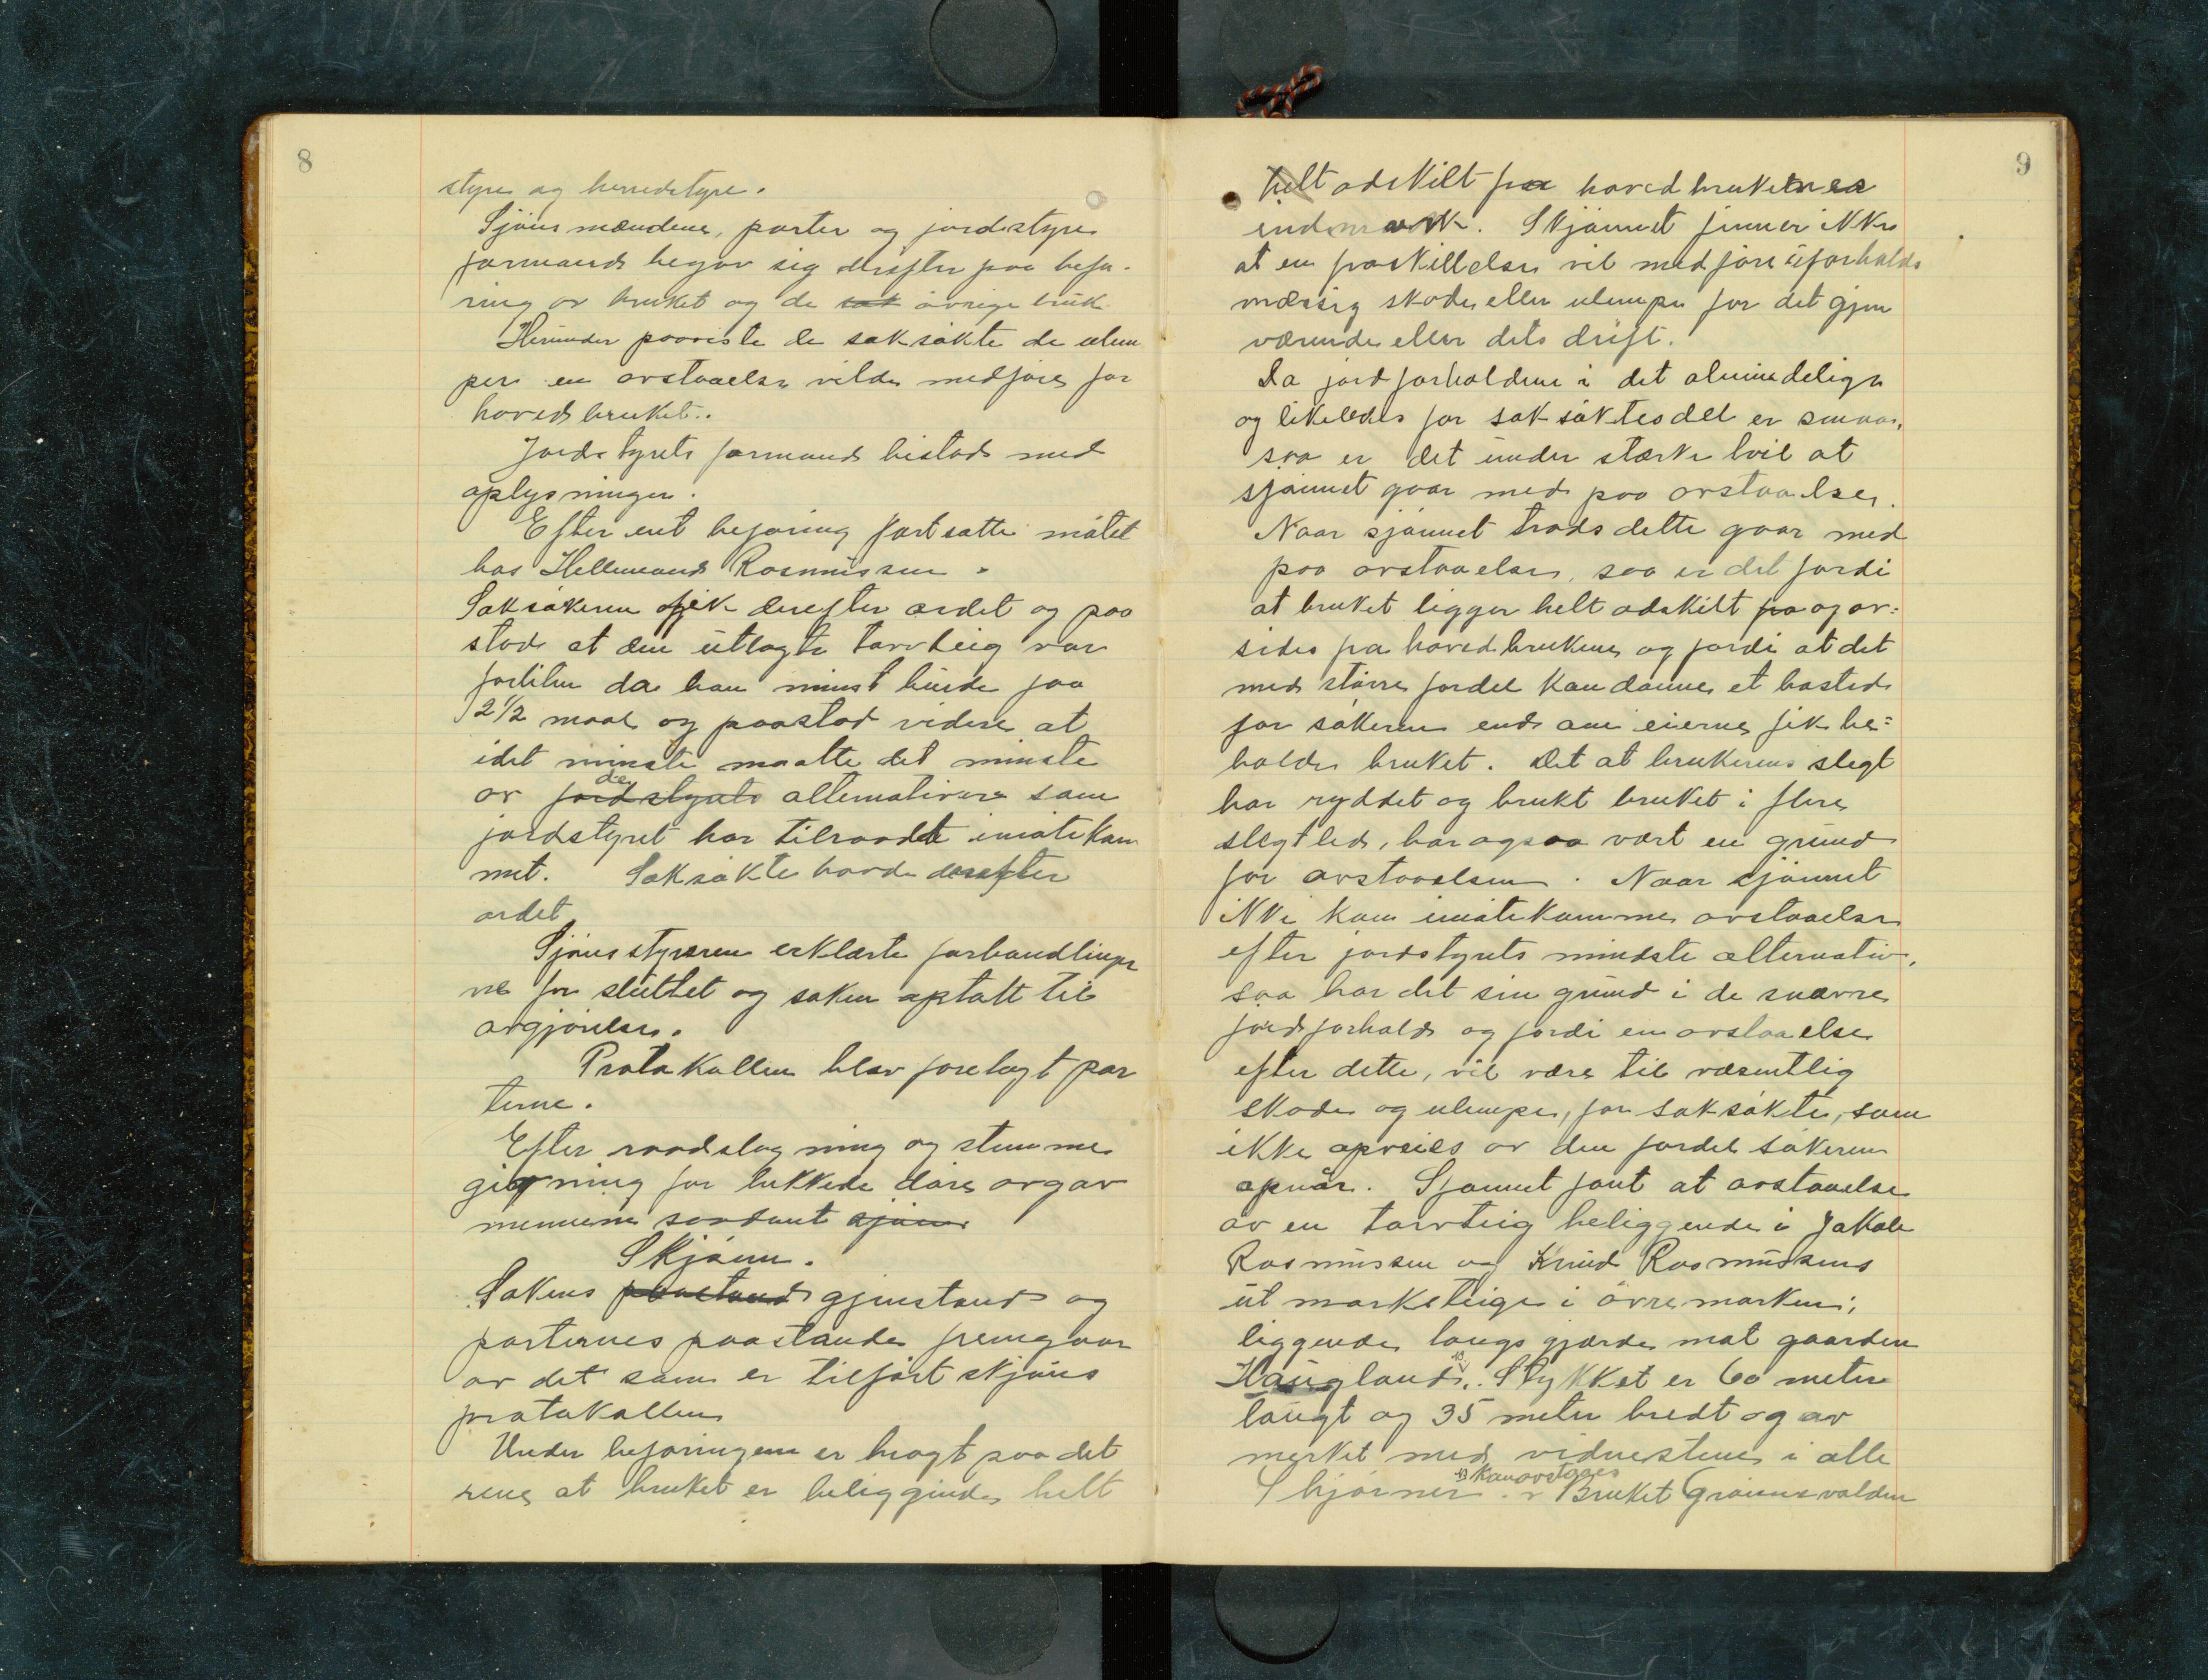 8
styre og herredstyre.
Sjønsmændene, parter og jordstyre
formand begav sig derefter paa befa-
ring av bruket og de sak øvrige bruk.
Herunder paaviste de saksøkte de ulem
per en avstaaelse vilde medføre for
hovedbruket.
Jordstyrets formand bistod med
oplysninger.
Efter ent befaring fortsatte møtet
hos Hellemand Rasmussen.
Saksøkeren fik derefter ordet og paa
stod at den utlagte torvteig var
forliten da han minst burde faa
2 1/2 maal og paastod videre at
idet minste maatte det minste
av jordstyrets de alternativer som
jordstyret har tilraadt imøtekom
met. Saksøkte havde derefter
ordet
Sjønsstyreren erklærte forhandlinge
ne for sluttet og saken optatt til
avgjørelse.
Protokollen blev forelagt par
terne.
Efter raadslagning og stemme
givning for lukkede døre avgav
mennene saadant sjøn
Skjønn.
Sakens paastand gjenstand og
parternes paastande fremgaar
av det som er tilført skjøns
protokollen
Under befaringen er bragt paa det
rene at bruket er beliggende helt
9
helt adskilt fra hovedbrukenes
indmark. Skjønnet finner ikke
at en fraskillelse vil medføre uforholds
mæssig skade eller ulempe for det gjen
værende eller dets drift.
Da jordforholdene i det alminnelige
og likeledes for saksøktes del er smaa,
saa er det under stærk tvil at
sjønnet gaar med paa avstaaelse.
Naar sjønnet trods dette gaar med
paa avstaaelse, saa er det fordi
at bruket ligger helt adskilt fra og av-
sides fra hovedbrukene og fordi at det
med større fordel kan danne et bosted
for søkeren end om eierne fik be-
holde bruket. Det at brukerens slegt
har ryddet og brukt bruket i flere
slegtled, har ogsaa vært en grund
for avstaaelsen. Naar sjønnet
ikke kan imøtekomme avstaaelse
efter jordstyrets mindste alternativ,
saa har det sin grund i de snævre
jordforhold og fordi en avstaaelse
efter dette, vil være til væsentlig
skade og ulempe, for saksøkte, som
ikke opveies av den fordel søkeren
opnår. Sjønnet fant at avstaaelse
av en torvteig beliggende i Jakob
Rasmussen og Knud Rasmussens
utmarksteige i øvremarken,
liggende langs gjærde mot gaarden
Haugland. Stykket er 60 meter
langt og 35 meter bredt og av
merket med vidnestene i alle
hjørner. kan avstaaes Bruket Grønnevolden